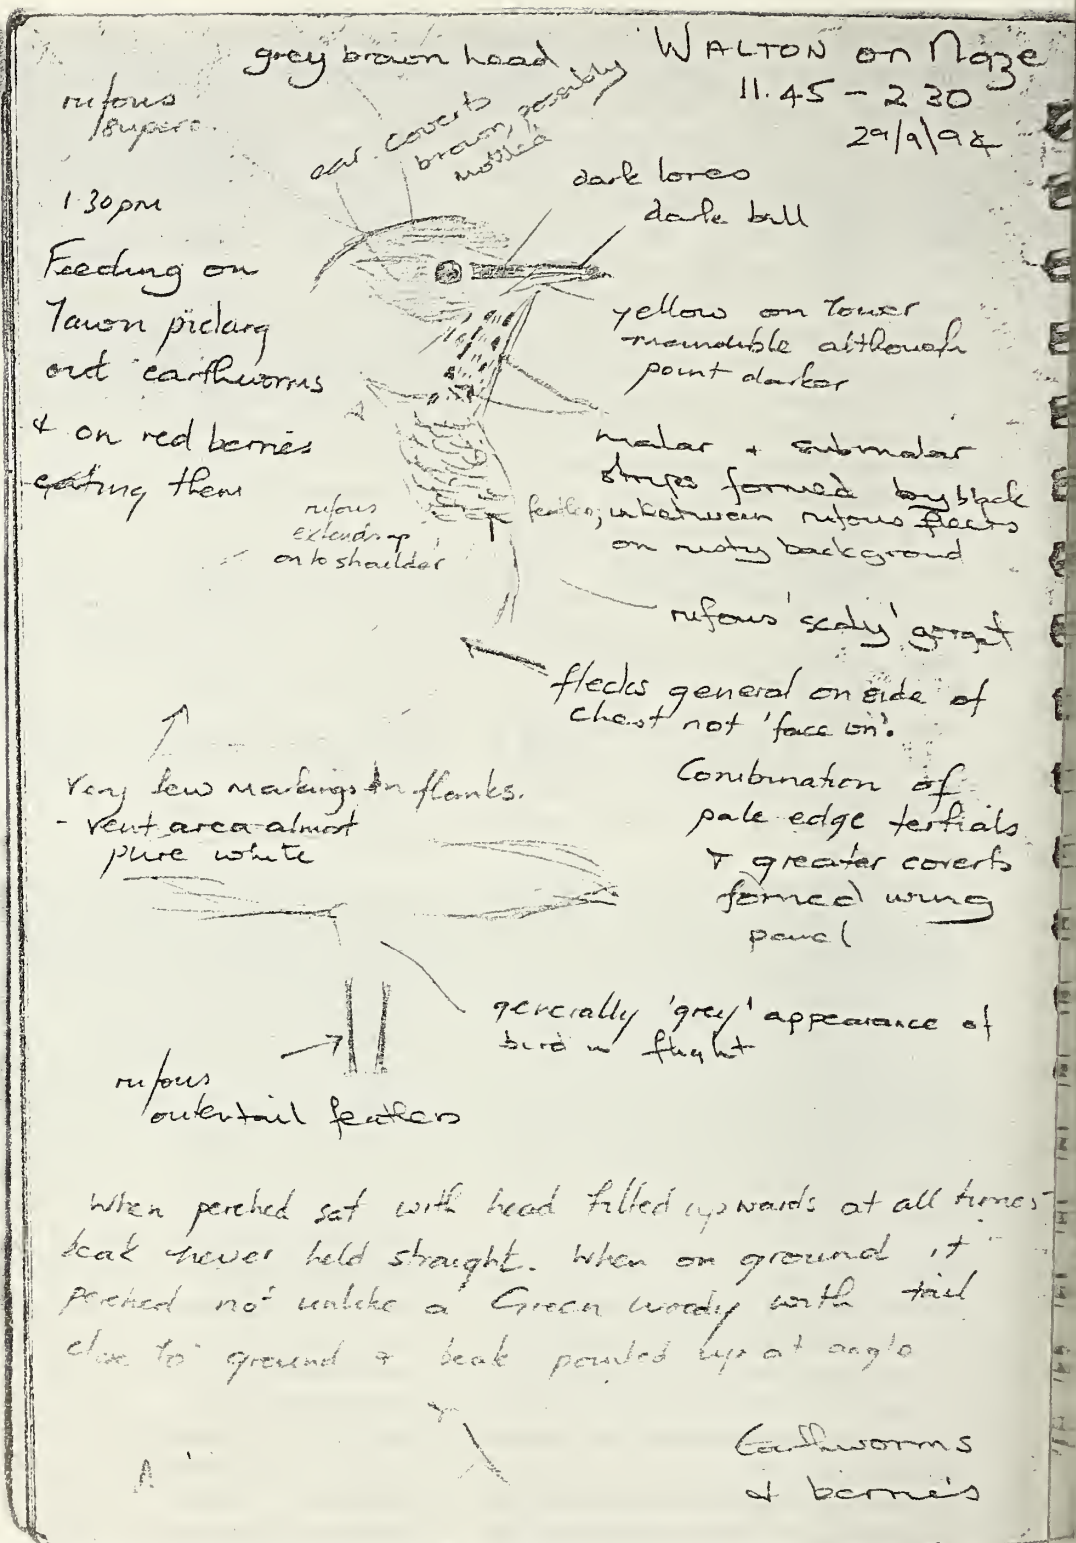 grey brown head
WALTON on Naze
11.45 - 2 30
29/9/94
rufous
superc.
ear coverts
brown, possibly
mottled
dark lores
dark bill
1.30pm
Feeding on
lawn picking
out earthworms
+ on red berries
eating them
yellow on lower
mandible although
point darker
malar + submalar
stripes formed by black
feathers, inbetween rufous flecks
on rusty background
rufous
extends up
on to shoulder
rufous 'scaly' gorget
flecks general on side of
chest not 'face on'.
Very few markings on flanks.
- vent area almost
pure white
Combination of
pale edge tertials
+ greater coverts
formed wing
panel
generally 'grey' appearance of
bird in flight
rufous
outertail feathers
When perched sat with head tilted upwards at all times
beak never held straight. When on ground it
perched not unlike a Green woody with tail
close to ground + beak pointed up at angle
Earthworms
+ berries